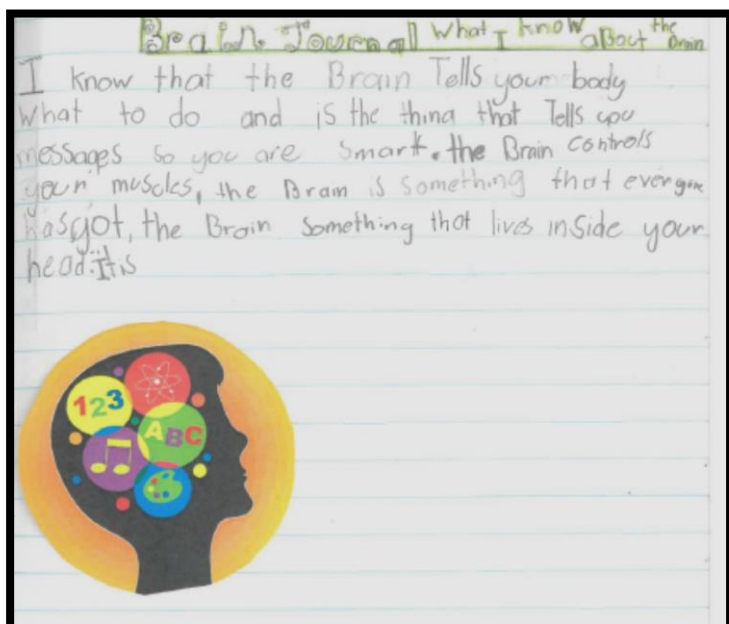 Brain Journal What I know about the Brain
I know that the Brain Tells your body
What to do and is the thing that Tells you
messages so you are Smart. the Brain controls
your muscles, the Brain is something that everyone
has got, the Brain something that lives inside your
head. It is
123
ABC